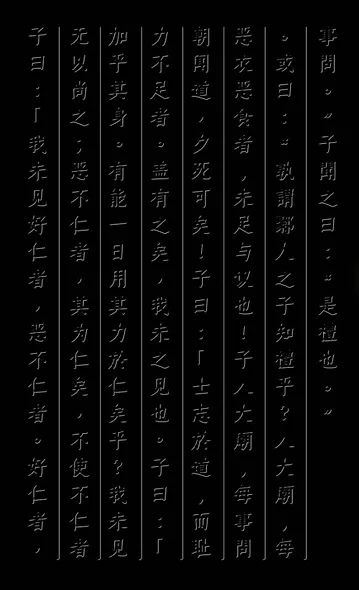 子曰：「我未见好仁者，恶不仁者。好仁者，
无以尚之；恶不仁者，其为仁矣，不使不仁者
加乎其身。有能一日用其力於仁矣乎？我未见
力不足者。盖有之矣，我未之见也。子曰：「
朝闻道，夕死可矣！子曰：「士志於道，而耻
恶衣恶食者，未足与议也！子入大廟，每事問
。或曰：“孰謂鄹人之子知禮乎？入大廟，每
事問。”子聞之曰：“是禮也。”